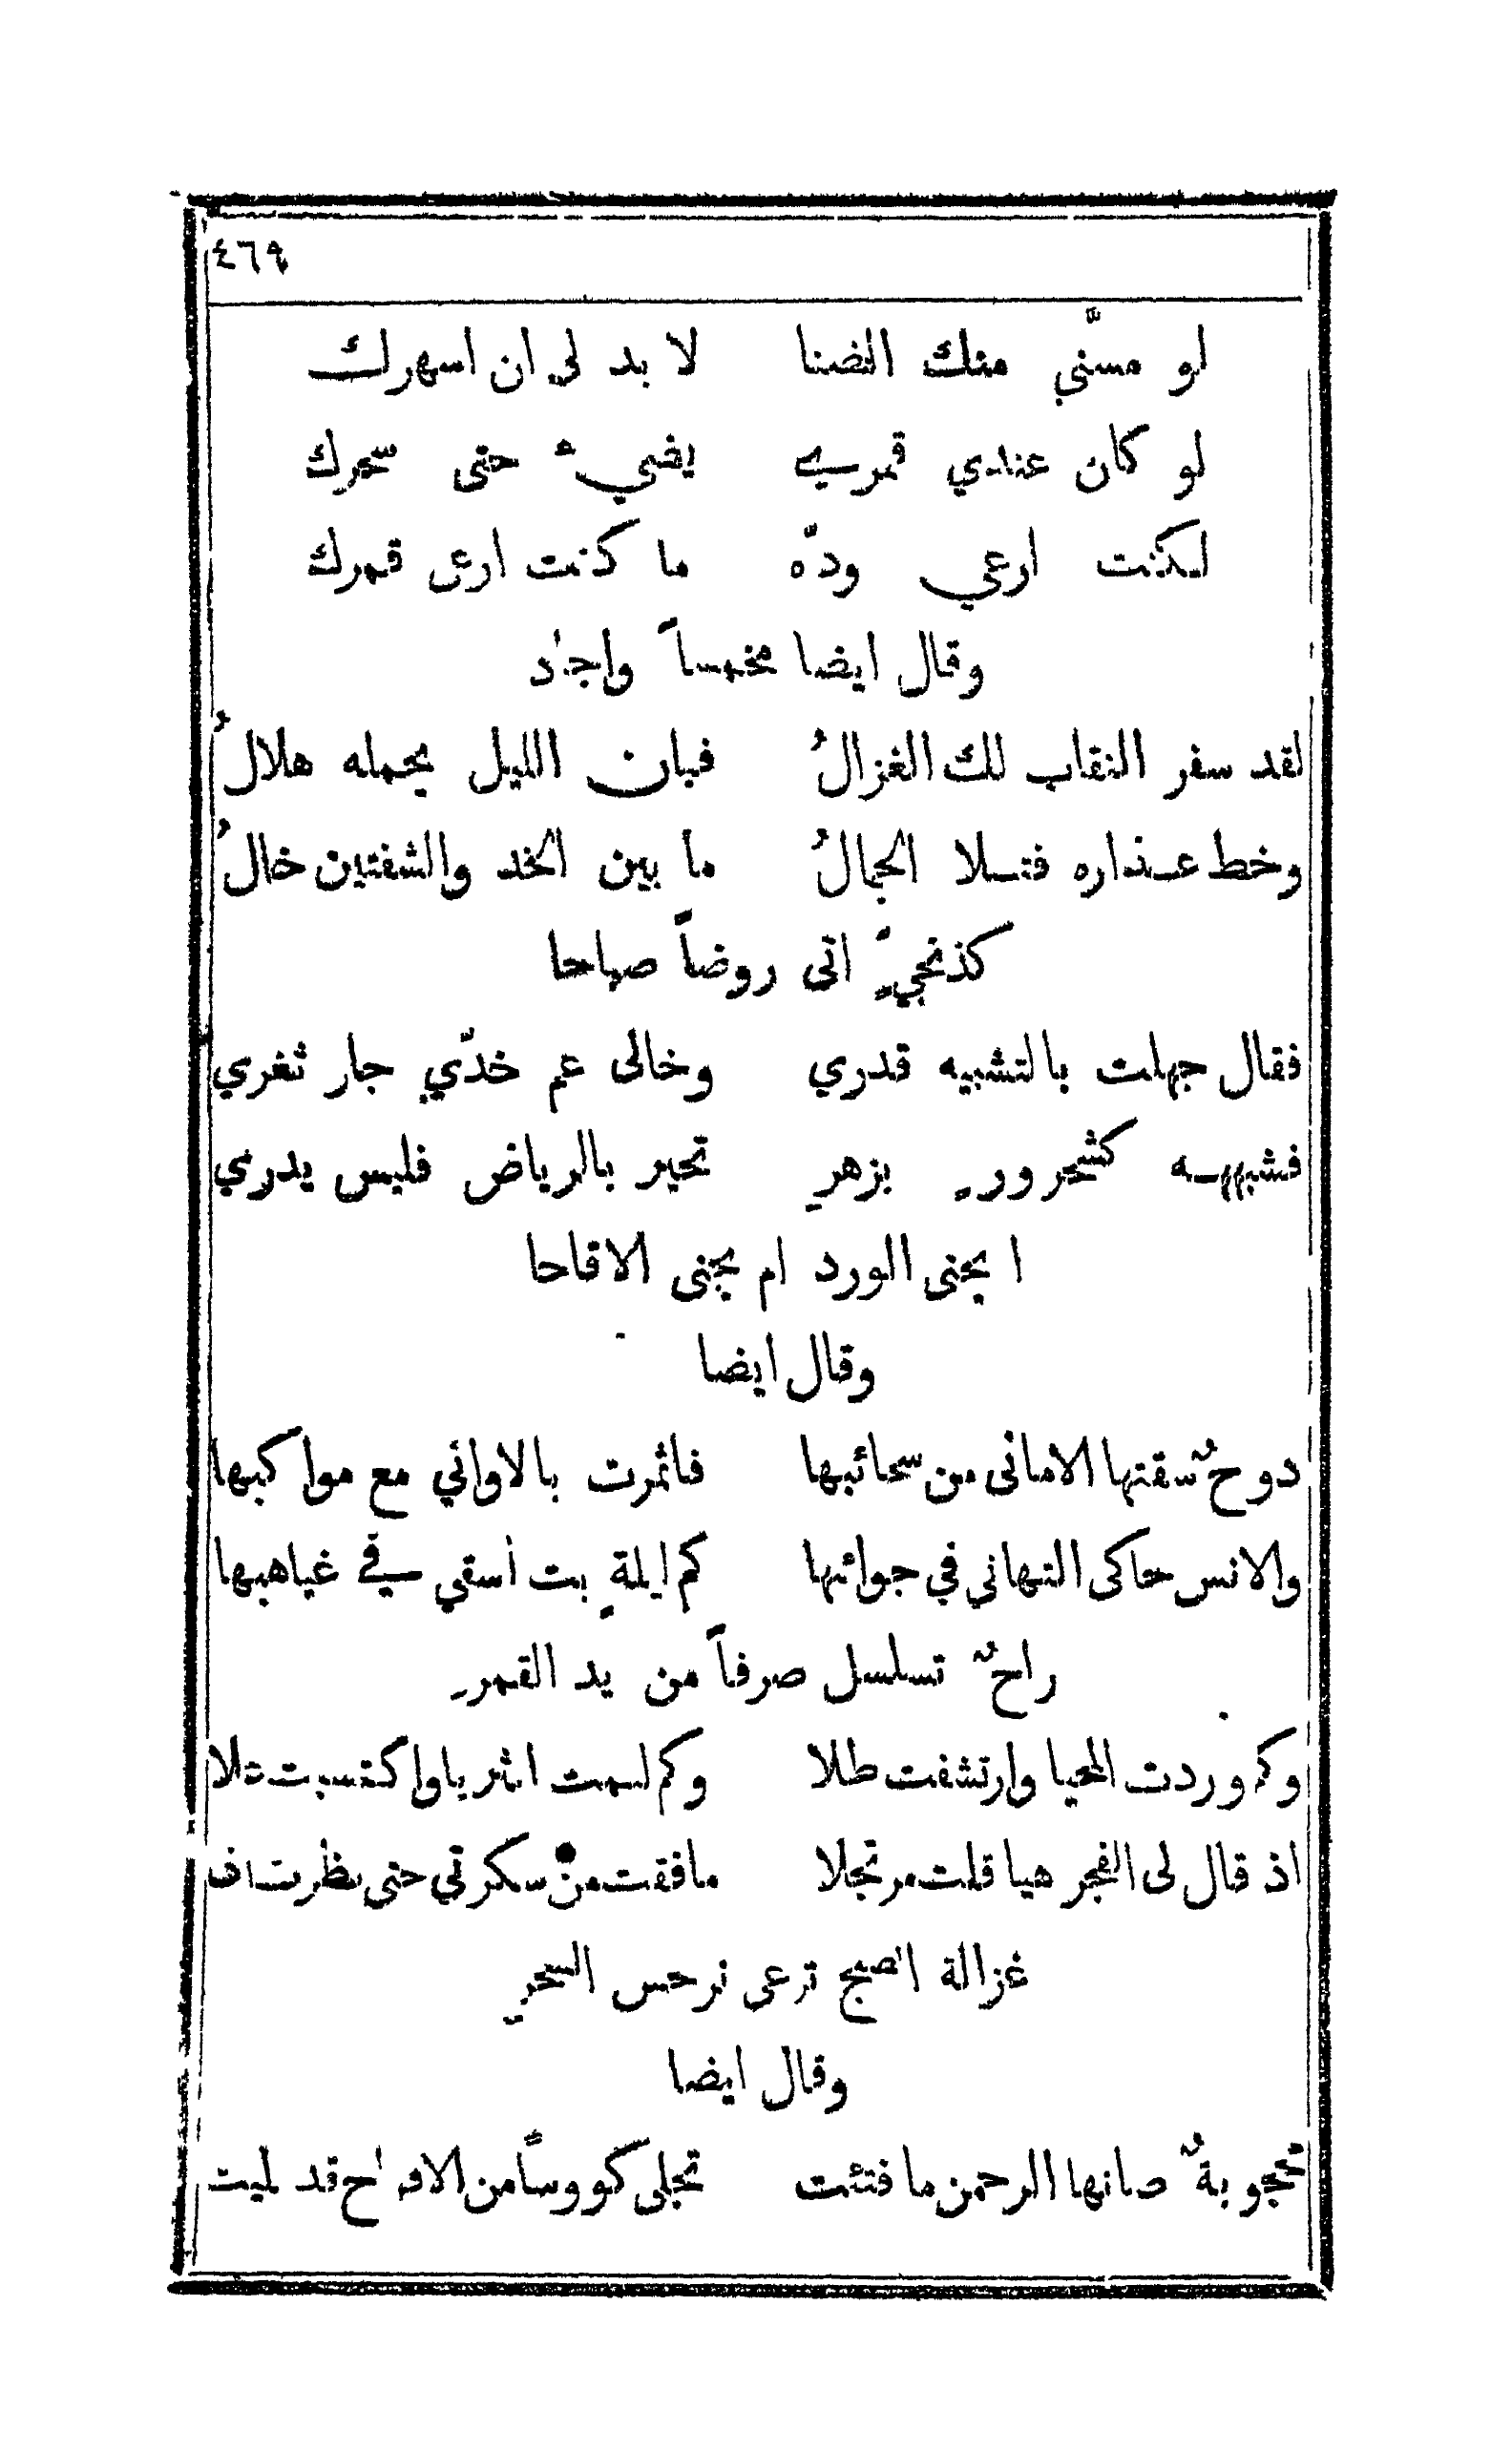 ٤٦٩
لو مسّني منك الضنا لا بد لي ان اسهرك
لو كان عندي قمري يضيء حتى سحرك
لكنت ارعي ودّه ما كنت ارعى قمرك
وقال ايضا مخمساً واجاد
لقد سفر النقاب لك الغزالُ فبان الليل يحمله هلالُ
وخط عذاره فتلا الجمالُ ما بين الخد والشفتين خالُ
كذنجيٍّ اتى روضاً صباحا
فقال جهلت بالتشبيه قدري وخالى عم خدّي جار ثغري
فشبهه كشحرورٍ بزهرٍ تحير بالرياض فليس يدري
ا يجنى الورد ام يجنى الاقاحا
وقال ايضا
دوحٌ سقتها الامانى من سحائبها فاثمرت بالاواني مع مواكبها
والانس حاكى التهاني في جوانبها كم ليلةٍ بت أسقي في غياهبها
راحٌ تسلسل صرفاً من يد القمرِ
وكم وردت المحيا وارتشفت طلا وكم لثمت الثريا واكتسبت علا
اذ قال لى الفجر هيا قلت مرتجلا مافقت من سكرتي حتى نظرت
غزالة الصبح ترعى نرجس السحرِ
وقال ايضا
محجوبةٌ صانها الرحمن ما فتئت تجلى كووساً من الافراح قد مليت